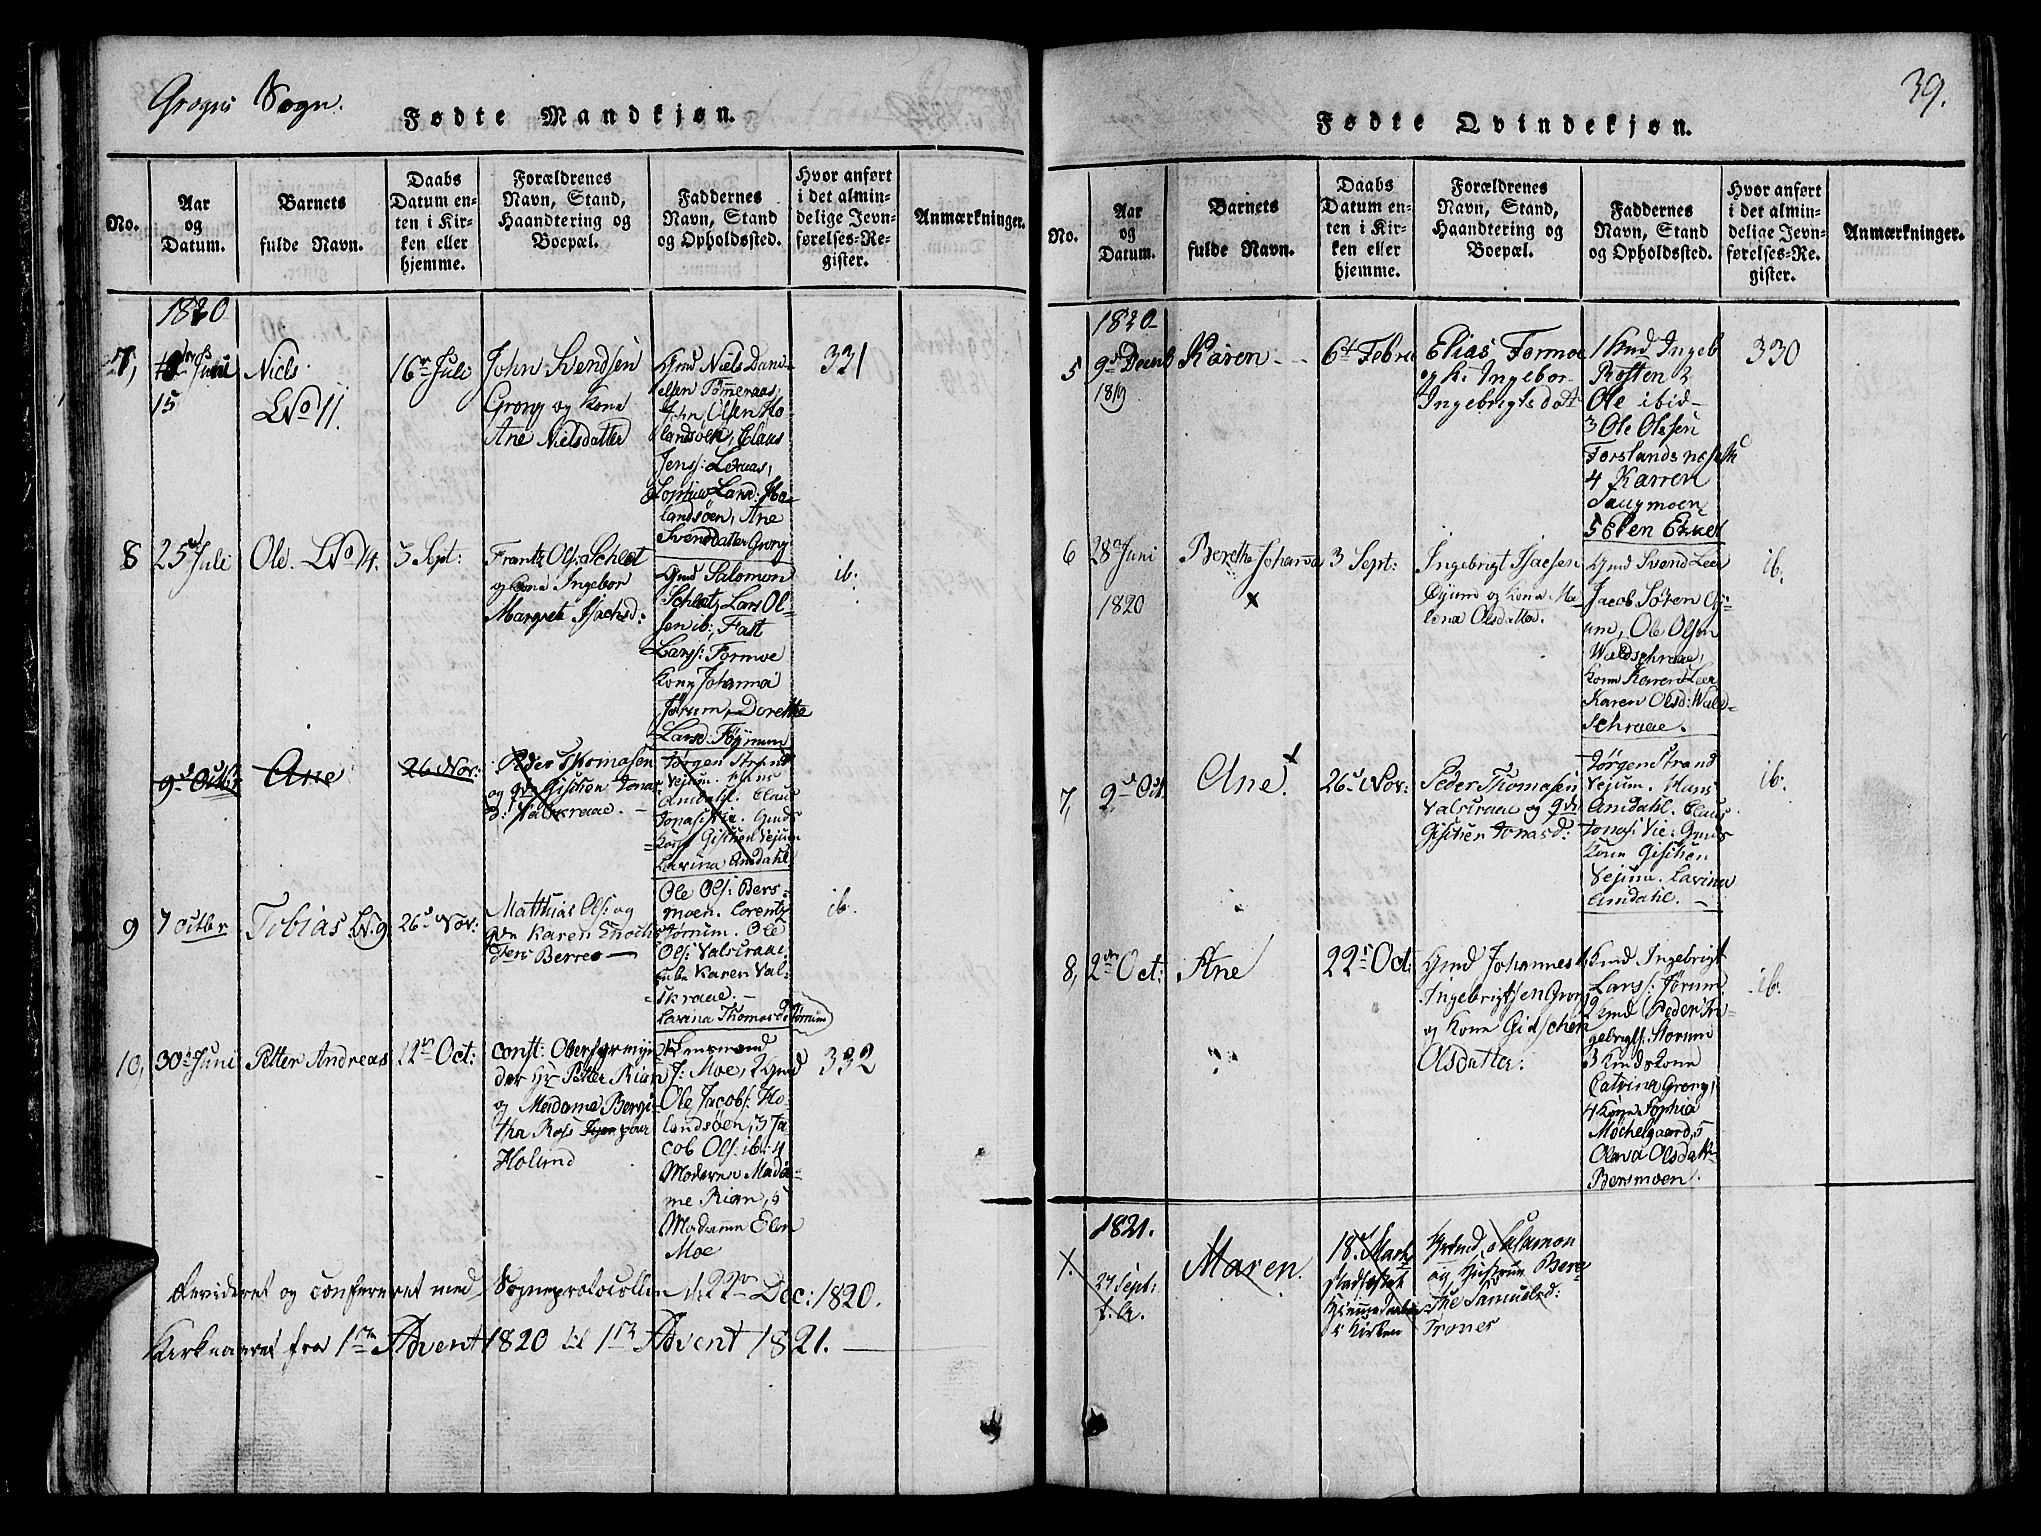 Grogns Sogn.
Fødte Mandkjøn.
No.
Aar
og
Datum.
Barnets
fulde Navn.
Daabs
Datum en-
ten i Kir-
ken eller
hjemme.
Forældrenes
Navn, Stand,
Haandtering og
Boepæl.
Faddernes
Navn, Stand
og Opholdssted.
Hvor anført
i det almin-
delige Jevn-
førelses-Re-
gister.
Anmærkninger.
1820
7,
Juni
15
Niels
LNo 11.
16 Juli
John Svendsen
Grong og Kone
Ane Nielsdatter
Gmd Niels Dani-
elsen Tømmeraas
John Olsen Ho-
landsöen, Claus
Jens:
Sophie Lars: Ho-
landsöen, Ane
Svensdatter Grong
331
8
25 Juli
Ole. LNo 14.
3 Sept:
Frantz Ols: Schlet
og Kone Ingebor
Margrete Isachsd:
Gmd Salomon
Schlet, Lars Ol-
sen ib:, Fast
Lars: Formoe
Kone Johanna
Jörum, Dorethe
Larsd: Föÿnum
ib:
9 Octbr
Ane
26 Nov:
Peder Thomasen
og Gischen Jona
d: Valskraae. -
Jörgen Strand
Vejum. Hans
Amdahl. Claus
Jonas: Vie. Gmds
Kone Gischen Vejum
Lavina Amdahl
9
7 octbr
Tobias LN. 9
26 Nov:
Matthias Ols: og
Karen Enochs
Berre
Ole Ols: Bers-
moen. Lorentz
Jörum. Ole
Ols: Valskraae
Karen Val-
skraae. -
Lavina Thomasd: Jörum
ib.
10,
30 Juni
Petter Andreas
22 Oct:
const: Oberformyn
der Hr Petter Rian
og Madame Bergi-
tha Ross
Holand
Lensmand
J: Moe, 2 Gmd
Ole Jacobs: Ho-
landsöen, 3 Ja
cob Ols: ib: 4
Moderen Mada-
me Rian, 5
Madame Elen
Moe
332
Revideret og confereret med Sogneprotocollen d: 22 Dec: 1820.
Kirkeaaret fra 1ste Advent 1820 til 1ste Advent 1821.
39.
Fødte Qvindekjøn.
No.
Aar
og
Datum.
Barnets
fulde Navn.
Daabs
Datum en-
ten i Kir-
ken eller
hjemme.
Forældrenes
Navn, Stand,
Haandtering og
Boepæl.
Faddernes
Navn, Stand
og Opholdssted.
Hvor anført
i det almin-
delige Jevn-
førelses-Re-
gister.
Anmærkninger.
1820
5
9 Decmb
1819
Karen
6 Febru
Elias Formoe
og K. Ingebor
Ingebrigtsdatt
1 Gmd Ingeb
Rosten 2
Ole ibid
3 Ole Olesen
Forslands
4 Karren
Saugmoen
5 Elen
330
6
28 Juni
1820
Berethe Johanna
x
3 Sept:
Ingebrigt Isacsen
Öÿum og Kone Ma-
lena Olsdatter.
Gmd Svend Leer
Jacob Sören Oÿ-
um, Ole Olsen
Waldschraae,
Kone Karen Leer
Karen Olsd: Wald-
schraae.
ib.
7,
2 Oct
Ane
26 Nov:
Peder Thomasen
Valskraae og
Gischen Jonasd:
Jörgen Strand
Vejum. Hans
Amdahl. Claus
Jonas: Vie: Gmds
Kone Gischen
Vejum. Lavina
Amdahl. -
ib.
8,
2 Oct:
Ane
22 Oct:
Gmd Johannes
Ingebrigtsen Grong
og Kone Gidschen
Olsdatter:
1 Gmd Ingebrigt
Lars: Jörum
2 Gmd Peder In-
gebrigts: Horum
3 Gmds Kone
Catrina Grong,
4 Kone Sophia
Mochelgaard, 5
Olava Olsdatt
Bersmoen.
ib.
1821.
1.
27 Sept:
Maren.
18 Marts
Stadfæstet
Hjemmedaaben
i Kirken
Gmd Salamon
og Hustrue Bere-
the Samuelsd:
Troner